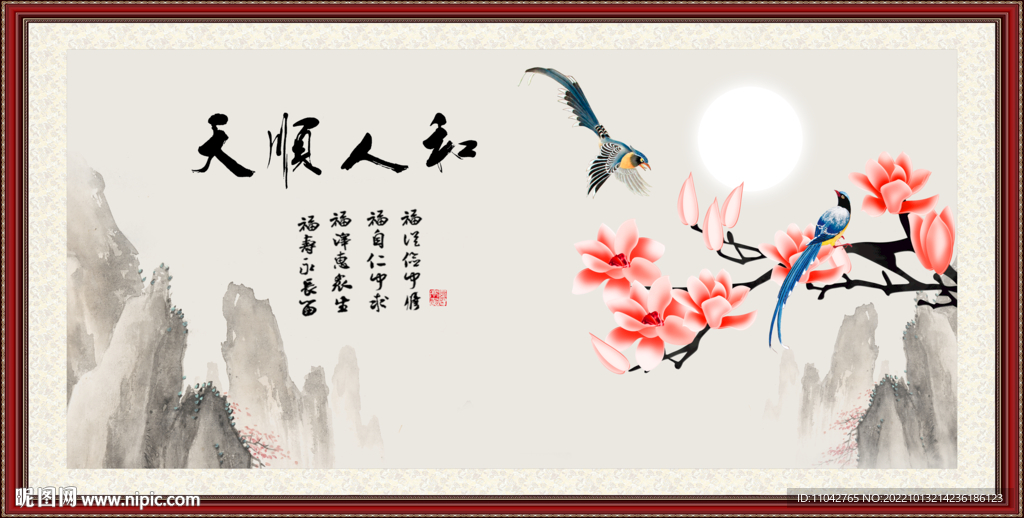 天順人和
福從儉中修
福自仁中求
福澤惠眾生
福壽永長留
昵图网 www.nipic.com
ID:11042765 NO:20221013214236186123